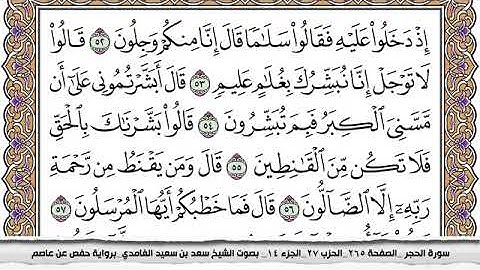 إِذْ دَخَلُوا۟ عَلَيْهِ فَقَالُوا۟ سَلَٰمًا قَالَ إِنَّا مِنكُمْ وَجِلُونَ ٥٢ قَالُوا۟
لَا تَوْجَلْ إِنَّا نُبَشِّرُكَ بِغُلَٰمٍ عَلِيمٍ ٥٣ قَالَ أَبَشَّرْتُمُونِى عَلَىٰٓ أَن
مَّسَّنِىَ ٱلْكِبَرُ فَبِمَ تُبَشِّرُونَ ٥٤ قَالُوا۟ بَشَّرْنَٰكَ بِٱلْحَقِّ
فَلَا تَكُن مِّنَ ٱلْقَٰنِطِينَ ٥٥ قَالَ وَمَن يَقْنَطُ مِن رَّحْمَةِ
رَبِّهِۦٓ إِلَّا ٱلضَّآلُّونَ ٥٦ قَالَ فَمَا خَطْبُكُمْ أَيُّهَا ٱلْمُرْسَلُونَ ٥٧
سورة الحجر _الصفحة ٢٦٥_ الحزب ٢٧_ الجزء ١٤_ بصوت الشيخ سعد بن سعيد الغامدي_ برواية حفص عن عاصم